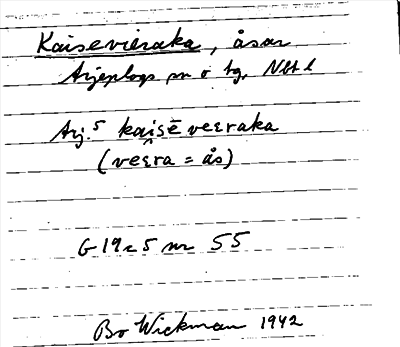 Kaisevieraka, åsar
Arjeplogs sn o tg, Nbt l
Arj.⁵ kaisē veɛraka
(veɛ̭ra = ås)
G 19 c 5 nr 55
Bo Wickman 1942